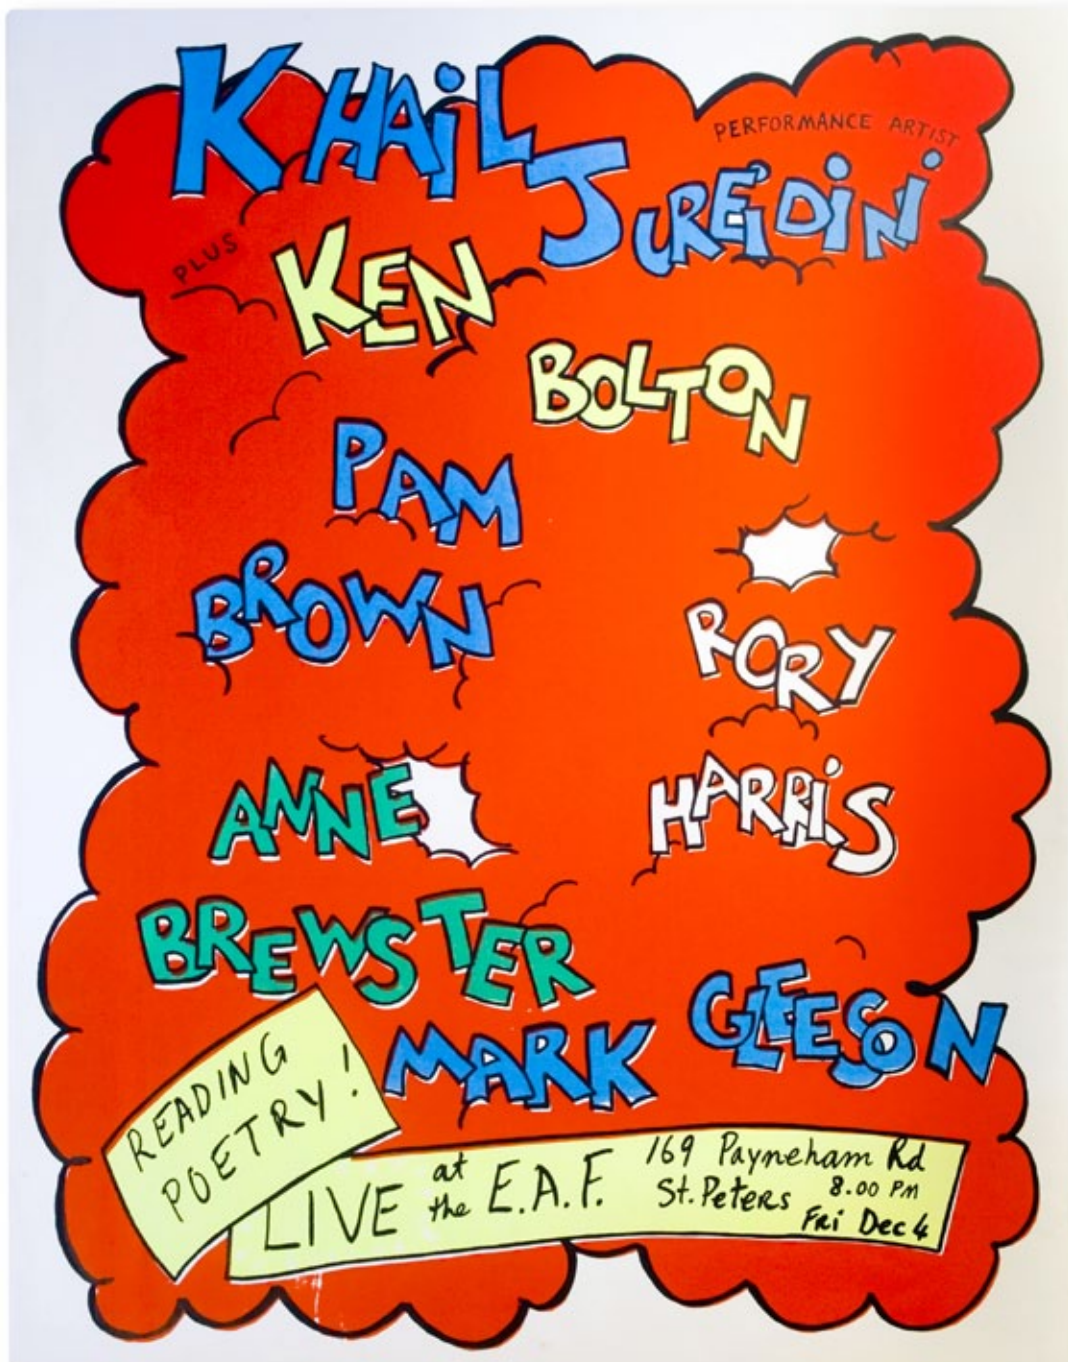 KHAiL
PERFORMANCE ARTIST
JUREiDiNi
PLUS
KEN
BOLTON
PAM
BROWN
RORY
HARRiS
ANNE
BREWSTER
MARK
GLEESON
READING
POETRY!
LIVE at the E.A.F.
169 Payneham Rd
St. Peters 8.00 PM
Fri Dec 4